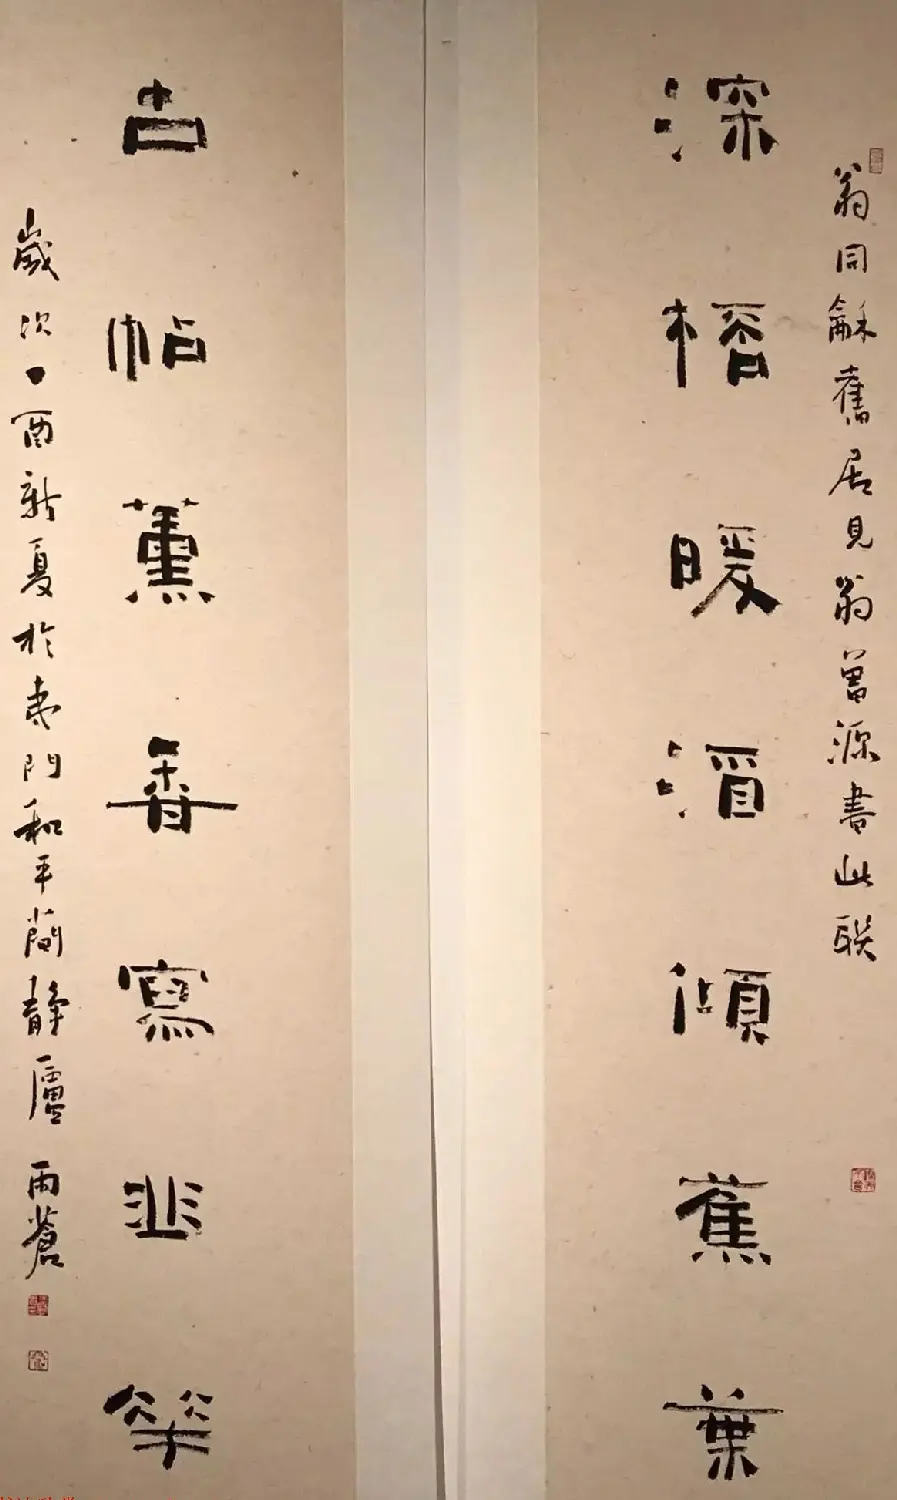 翁同龢舊居見翁曾源書此联
深桮暖酒傾蕉葉
古帖薰香寫韭華
歲次丁酉新夏於吳門和平簡靜廬 雨蒼